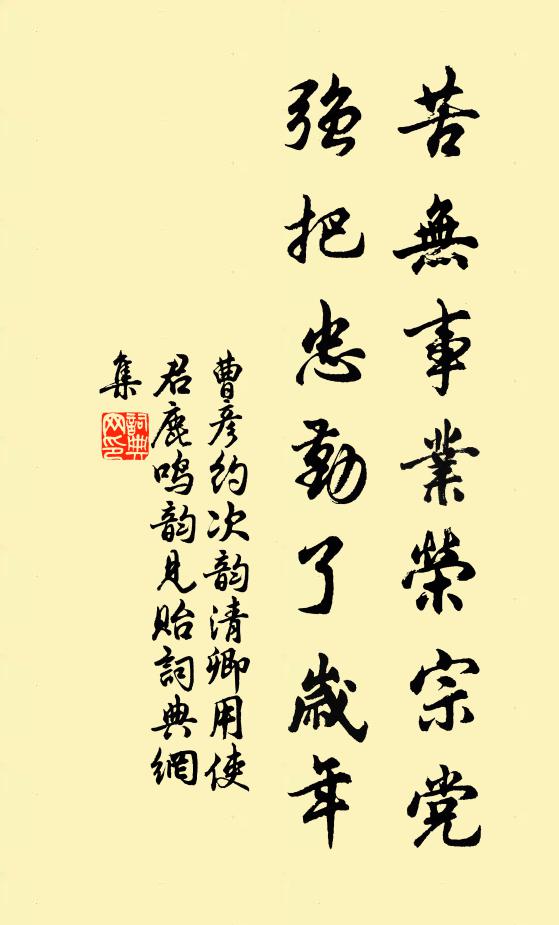 苦無事業榮宗党
强把忠勤了歲年
曹彦約次韵清卿用使
君鹿鳴韵見貽詞典網
集
詞典
网印